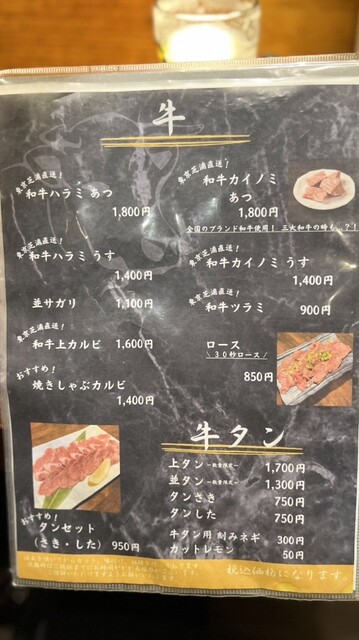 牛
東京芝浦直送！
和牛ハラミ あつ
1,800円
東京芝浦直送！
和牛カイノミ
あつ
1,800円
全国のブランド和牛使用！ 三大和牛の時も…?！
東京芝浦直送！
和牛ハラミ うす
1,400円
東京芝浦直送！
和牛カイノミ うす
1,400円
並サガリ 1,100円
東京芝浦直送！
和牛ツラミ 900円
東京芝浦直送！
和牛上カルビ 1,600円
ロース
\ 30秒ロース /
850円
おすすめ！
焼きしゃぶカルビ
1,400円
牛タン
上タン ～数量限定～ 1,700円
並タン ～数量限定～ 1,300円
タンさき 750円
タンした 750円
牛タン用 刻みネギ 300円
カットレモン 50円
おすすめ！
タンセット
(さき・した) 950円
税込価格になります。